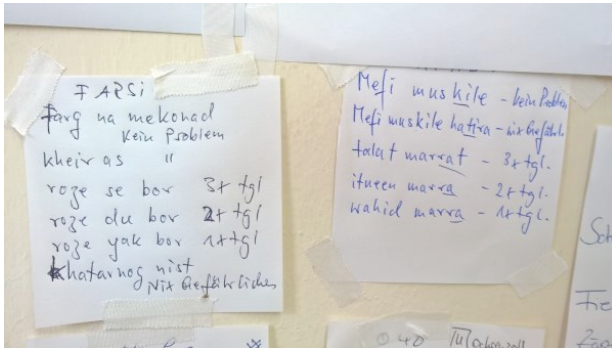 FARSI
Farg na mekonad
Kein Problem
kheir as "
roze se bor 3x tgl
roze du bor 2x tgl
roze yak bor 1x tgl
khatarnog nist
Nix Gefährliches
Mefi muskile - kein Problem
Mefi muskile hatira - nix Gefährl.
talat marrat - 3x tgl.
itneen marra - 2x tgl.
wahid marra - 1x tgl.